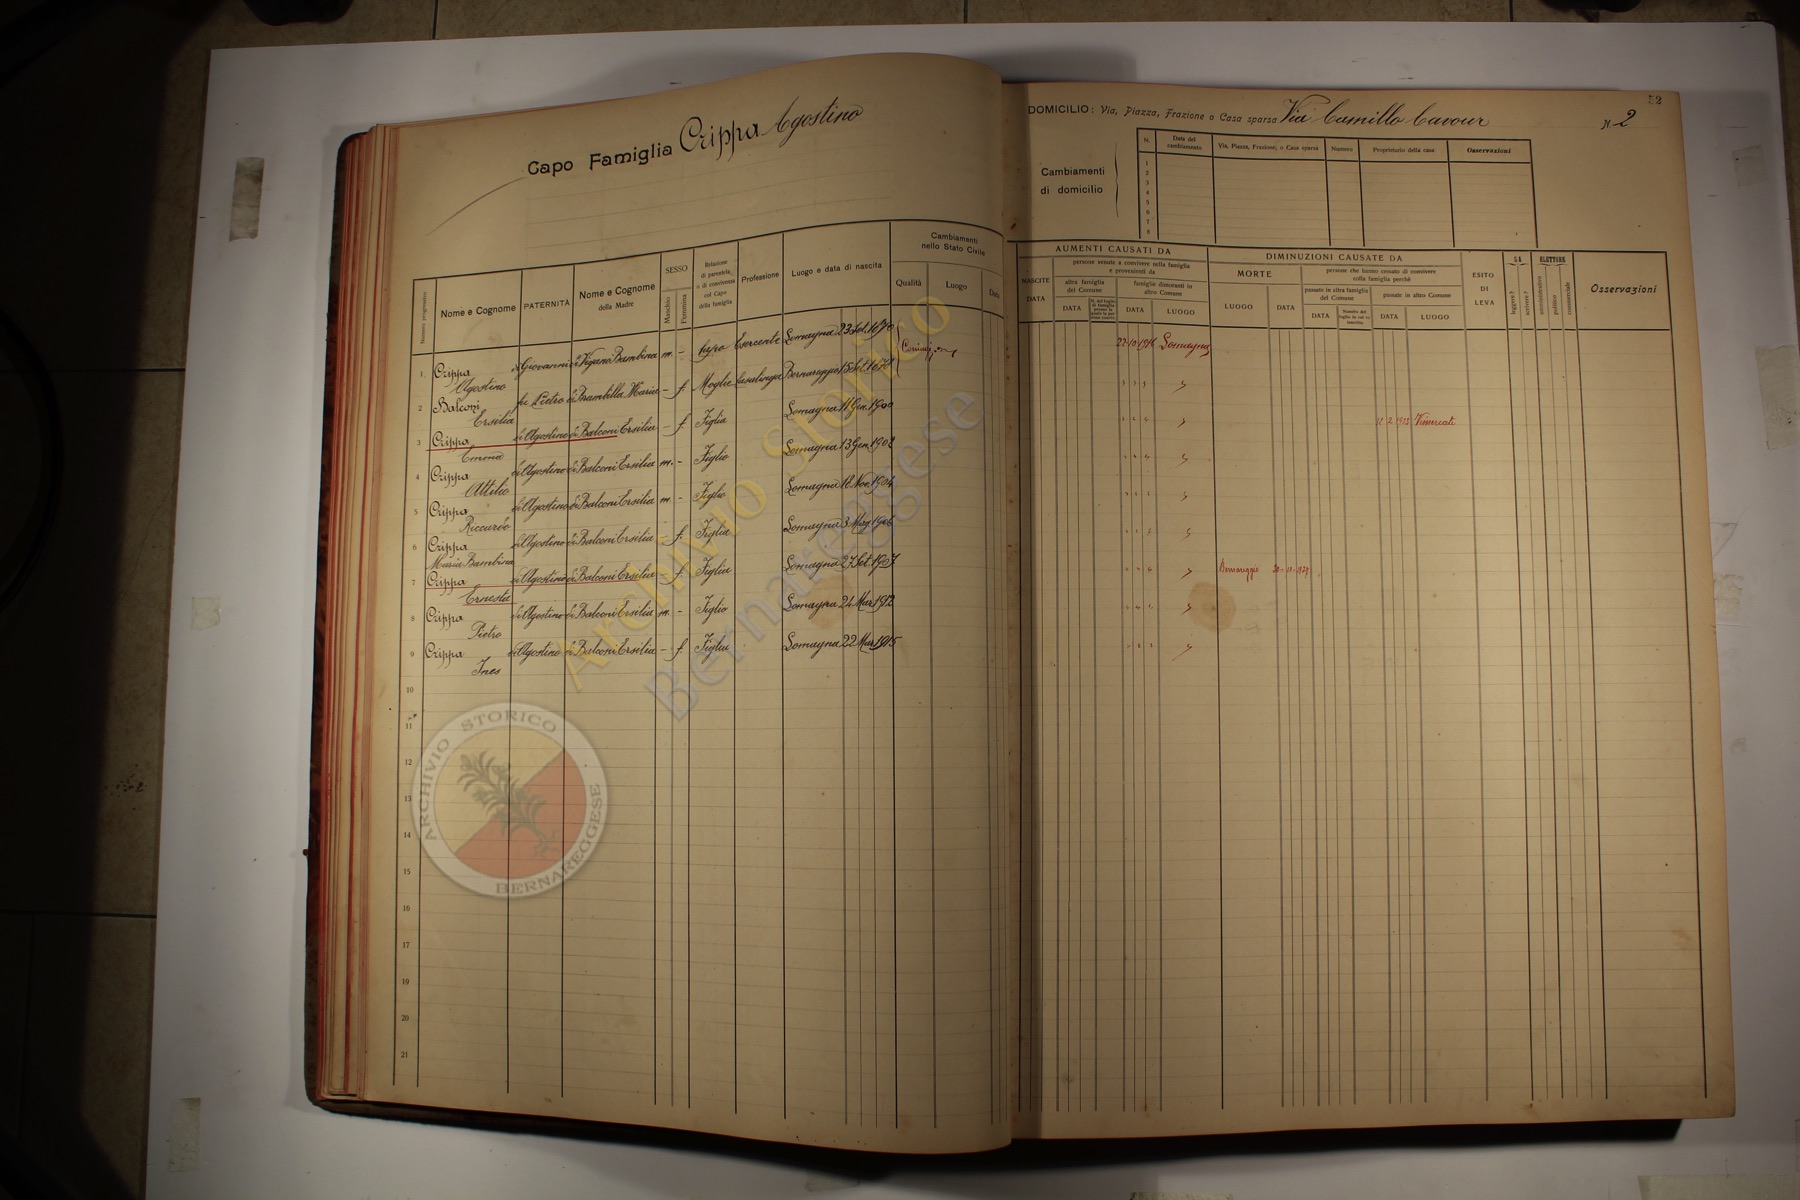 Capo Famiglia Crippa Agostino
Numero progressivo
Nome e Cognome
PATERNITÀ
Nome e Cognome
della Madre
SESSO
Maschio
Femmina
Relazione
di parentela
o di convivenza
col Capo
della famiglia
Professione
Luogo e data di nascita
Cambiamenti
nello Stato Civile
Qualità
Luogo
Data
1 Crippa Agostino di Giovanni di Viganò Bambina m. - Capo Esercente Lomagna 23
2 Balconi Ersilia fu Pietro di Brambilla Maria - f. Moglie Casalinga Bernareggio 15
3 Crippa Emma di Agostino di Balconi Ersilia - f. Figlia Lomagna 11 Gen. 1900
4 Crippa Attilio di Agostino di Balconi Ersilia m. - Figlio Lomagna 13 Gen. 1902
5 Crippa Riccardo di Agostino di Balconi Ersilia m. - Figlio Lomagna 18 Nov. 1904
6 Crippa Maria Bambina di Agostino di Balconi Ersilia - f. Figlia Lomagna 3 1906
7 Crippa Ernesta di Agostino di Balconi Ersilia - f. Figlia Lomagna 27 Set. 1907
8 Crippa Pietro di Agostino di Balconi Ersilia m. - Figlio Lomagna 24 Mar. 1912
9 Crippa Ines di Agostino di Balconi Ersilia - f. Figlia Lomagna 22 Mar. 1915
10
11
12
13
14
15
16
17
18
19
20
21
52
DOMICILIO: Via, Piazza, Frazione o Casa sparsa Via Camillo Cavour N. 2
Cambiamenti
di domicilio
N.
Data del
cambiamento
Via, Piazza, Frazione, o Casa sparsa
Numero
Proprietario della casa
Osservazioni
1
2
3
4
5
6
7
8
AUMENTI CAUSATI DA
NASCITE
DATA
persone venute a convivere nella famiglia
e provenienti da
altra famiglia
del Comune
DATA
famiglie dimoranti in
altro Comune
DATA
LUOGO
DIMINUZIONI CAUSATE DA
MORTE
LUOGO
DATA
persone che hanno cessato di convivere
colla famiglia perchè
passate in altra famiglia
del Comune
DATA
passate in altro Comune
DATA
LUOGO
ESITO
DI
LEVA
SA
leggere?
scrivere?
ELETTORE
amministrativo
politico
commerciale
Osservazioni
22-10-1916 Lomagna
Vimercate
Bernareggio
Archivio Storico
Bernareggese
ARCHIVIO STORICO
BERNAREGGESE